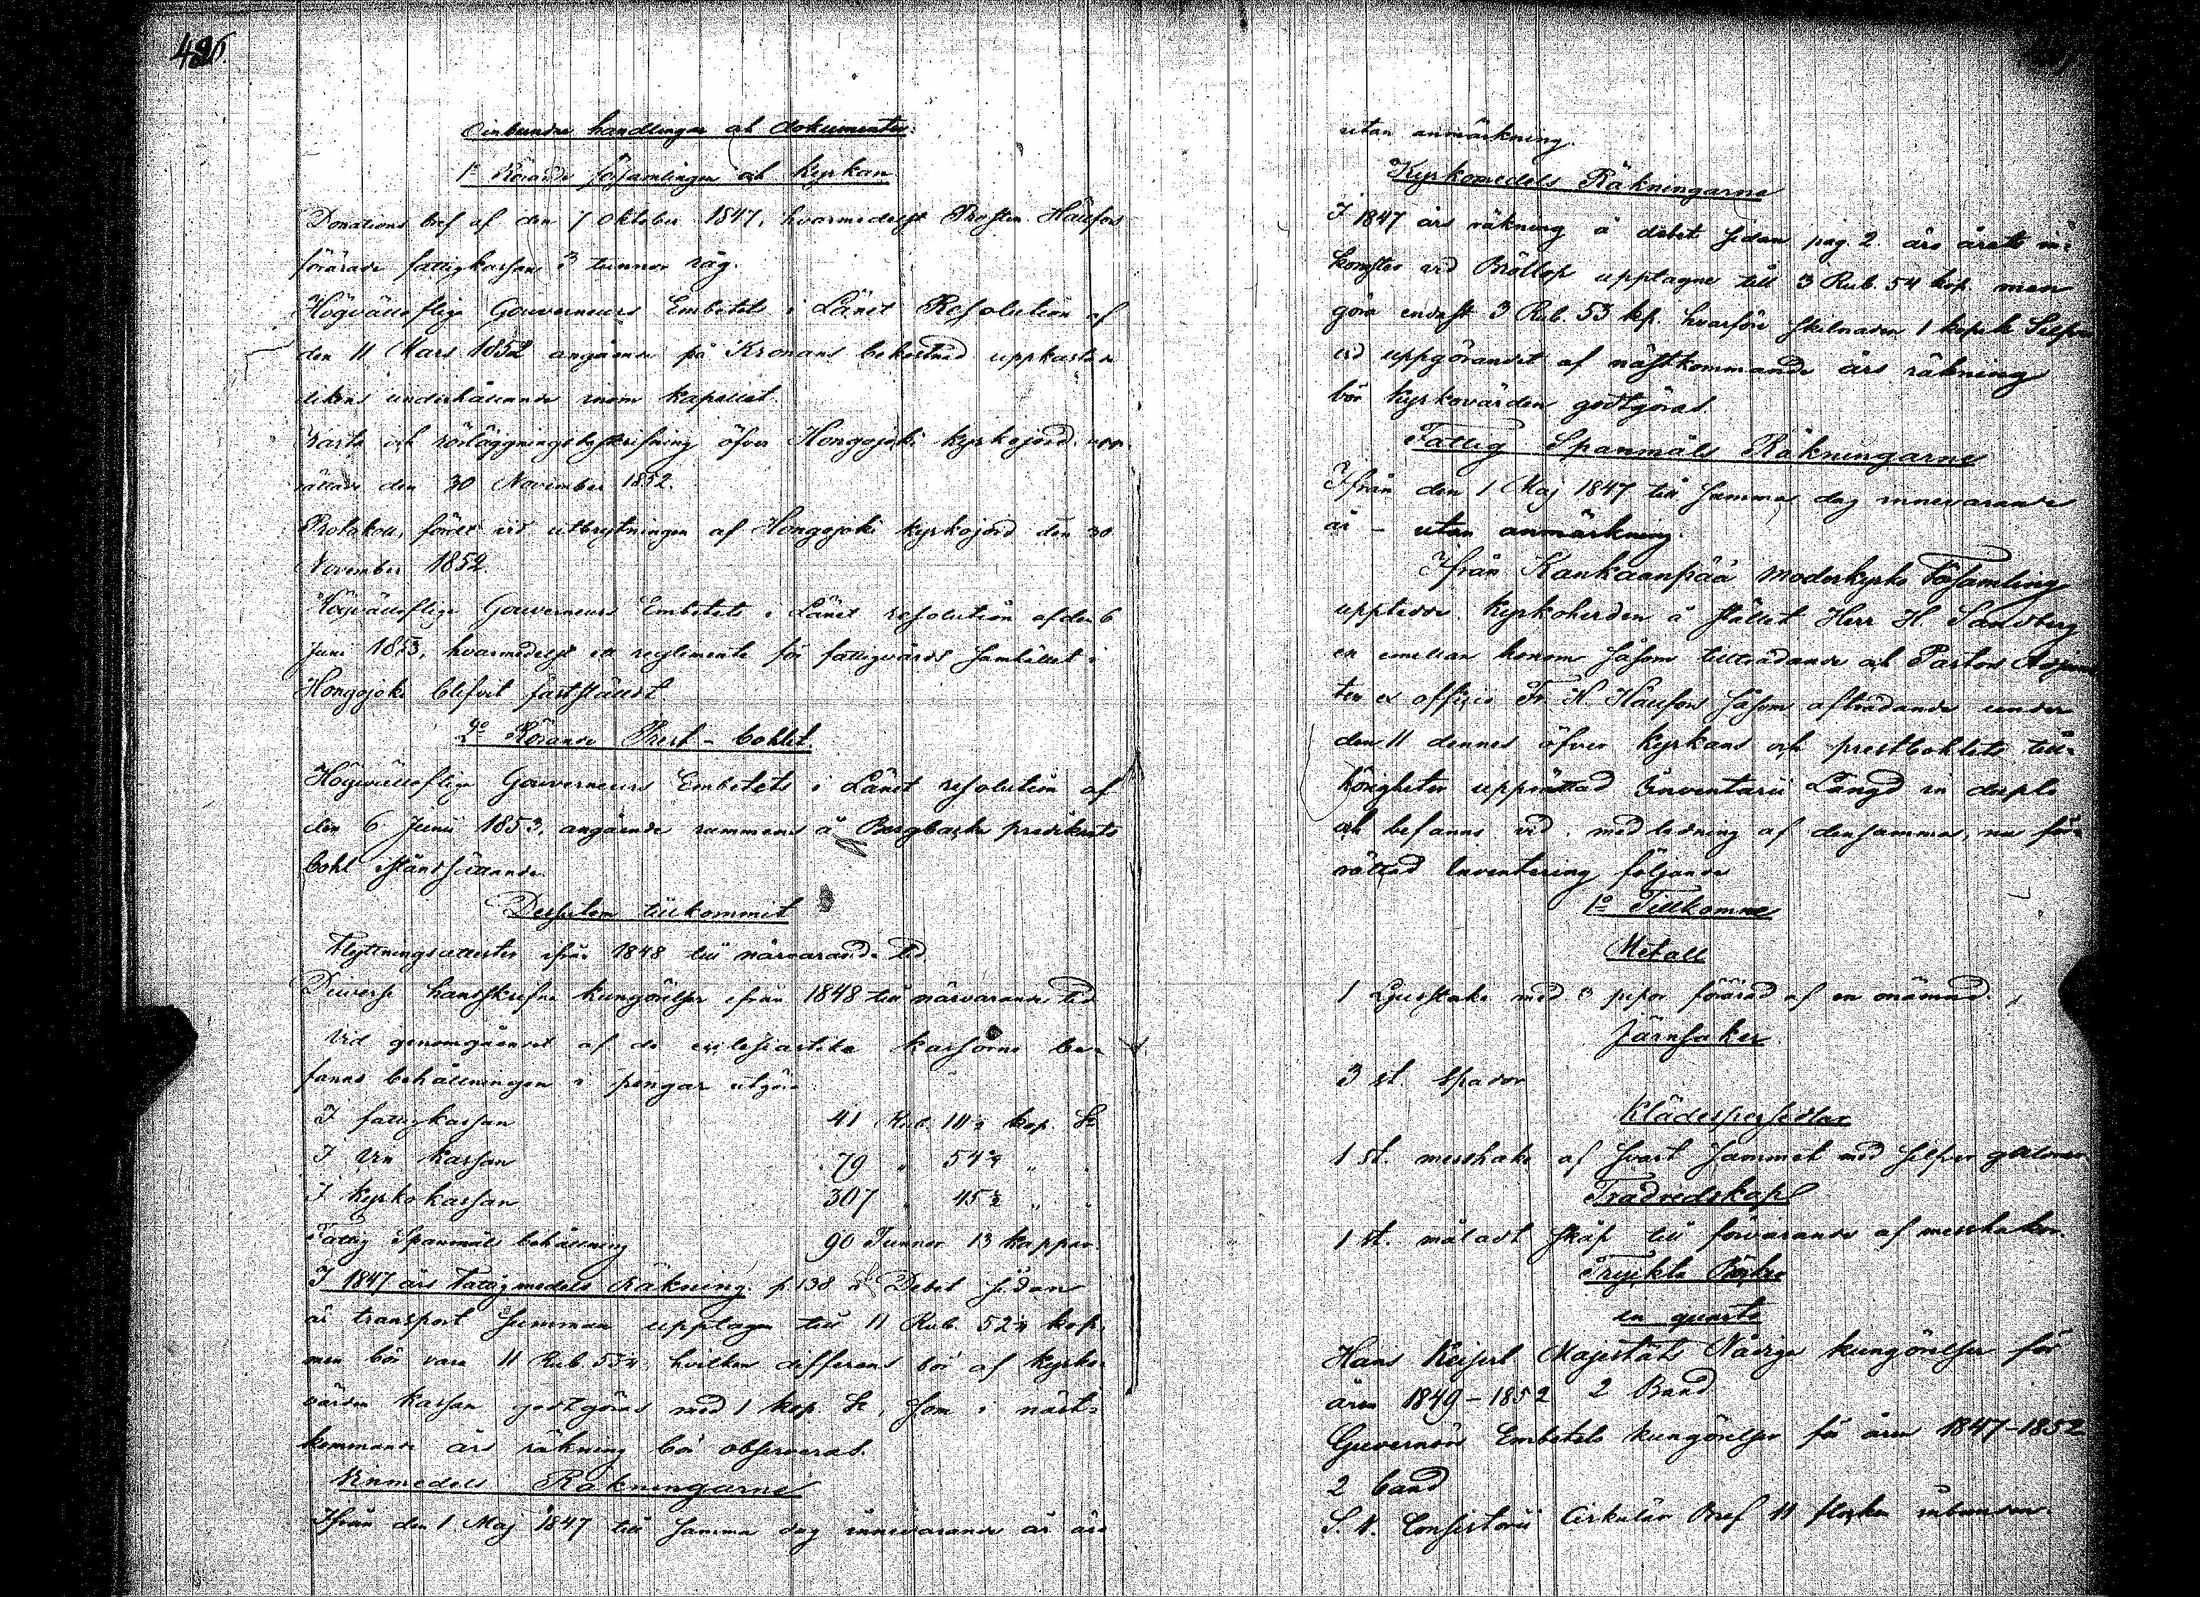 Oinbundne handlingar och dokumenter.
1o Rörande församlingen och Kyrkan
Donations bref af den 7 Oktober 1847, hvarmedelst Prosten Häufors
förärade fattigkassan 3 tunnor råg.
Högvällofliga Gouverneurs Embetets i Länet Resolution af
den 11 Mars 1852 angående på Kronans bekostnad uppkastade
likens underhållande inom kapellet.
Karta och rörläggningsbeskrifning öfver Hongojoki kyrkojord, upp-
rättade den 30 November 1852.
Protokoll, fördt vid utbrytningen af Hongojoki kyrkojord den 30
November 1852.
Högvällofliga Gouverneurs Embetets i Länet resolution af den 6
Juni 1853, hvarmedelst ett reglemente för fattigvårds samhället i
Hongojoki blifvit fastställdt
2o Rörande Prest-bohlet
Högvällofliga Gouverneurs Embetets i Länet resolution af
den 6 Junii 1853, angående rummens å Bergbacka predikants
bohl iståndsättande.
Dessutom tillkommit
Flyttningsattester ifrån 1848 till närvarande tid
Diverse handskrefne kungörelser ifrån 1848 till närvarande tid
Vid genomgåendet af de ecclesiastika kassorna be-
fanns behållningen i pengar utgöra
I fattigkassan 41 Rub. 11 kop. Sr
I Vin kassan 79 " 54 " "
I Kyrkokassan 307 " 45 " "
Fattig Spanmåls behållning 90 Tunnor 13 kappar.
I 1847 års Fattigmedels Räkning. p. 138 å Debet sidan
är transport Summan upptagen till 11 Rub. 52 kop.
men bör vara 11 Rub 53, hvilken differens bör af Kyrko-
värden kassan godtgöras med 1 kop Sr, som i näst-
kommande års räkning bör observeras.
Vinmedels Räkningarne
Ifrån den 1 Maj 1847 till samma dag innevarande år äro
utan anmärkning.
Kyrkomedels Räkningarne
I 1847 års räkning å debet sidan pag. 2. äro årets in-
komster vid Bröllop upptagne till 3 Rub. 54 kop. men
göra endast 3 Rub. 53 kp. hvarföre skilnaden 1 kopek Silfver
vid uppgörandet af nästkommande års räkning
bör kyrkovärden godtgöras.
Fattig Spanmåls Räkningarne
Ifrån den 1 Maj 1847 till samma dag innevarande
år – utan anmärkning.
Ifrån Kankaanpää moderkyrko Församling
uppteddes Kyrkoherden å stället Herr H Sandberg
en emellan honom såsom tillträdande och Pastors Adjunc
ten ex officio Fr. K. Häufors såsom afträdande under
den 11 dennes öfver kyrkans och prestbohlets till-
hörigheter upprättad Inventarii Längd in duplo
och befanns vid, med ledning af densamma, nu för-
rättad Inventering följande
1o Tillkomne
Metall
1 Ljusstake med 3 pipor förärad af en onämnd.
Järnsaker
3 st. spador
Klädespersedlar
1 st. messhake af svart sammet med silfver galoner
Trädredskap
1 st. måladt skåp till förvarande af messhaken.
Tryckta Böcker
in quarto
Hans Keiserl Majestäts Nådige kungörelser för
åren 1849–1852 2 Band
Guvernörs Embetets kungörelser för åren 1847–1852
2 band
S. V. Consistorii Cirkulär Bref 11 stycken inbundne.